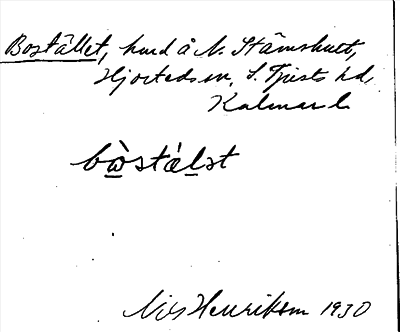 Boställlet, hmd å N. Stämshult,
Hjorteds sn, S. Tjusts hd,
Kalmar l.
bòstálet
Nils Henrikson 1930